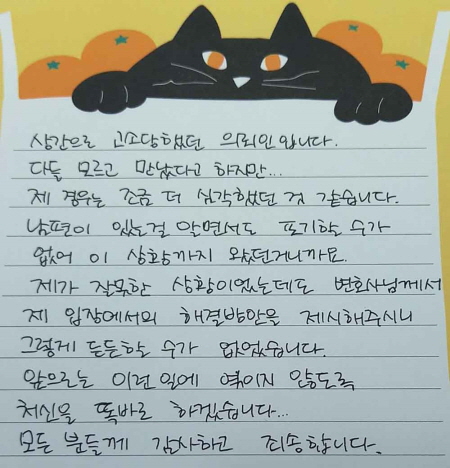 상간으로 고소당했던 의뢰인입니다.
다들 모르고 만났다고 하지만...
제 경우는 조금 더 심각했던 것 같습니다.
남편이 있는걸 알면서도 포기할 수가
없어 이 상황까지 왔던거니까요.
제가 잘못한 상황이었는데도 변호사님께서
제 입장에서의 해결방안을 제시해주시니
그렇게 든든할 수가 없었습니다.
앞으로는 이런 일에 엮이지 않도록
처신을 똑바로 하겠습니다...
모든 분들께 감사하고 죄송합니다.